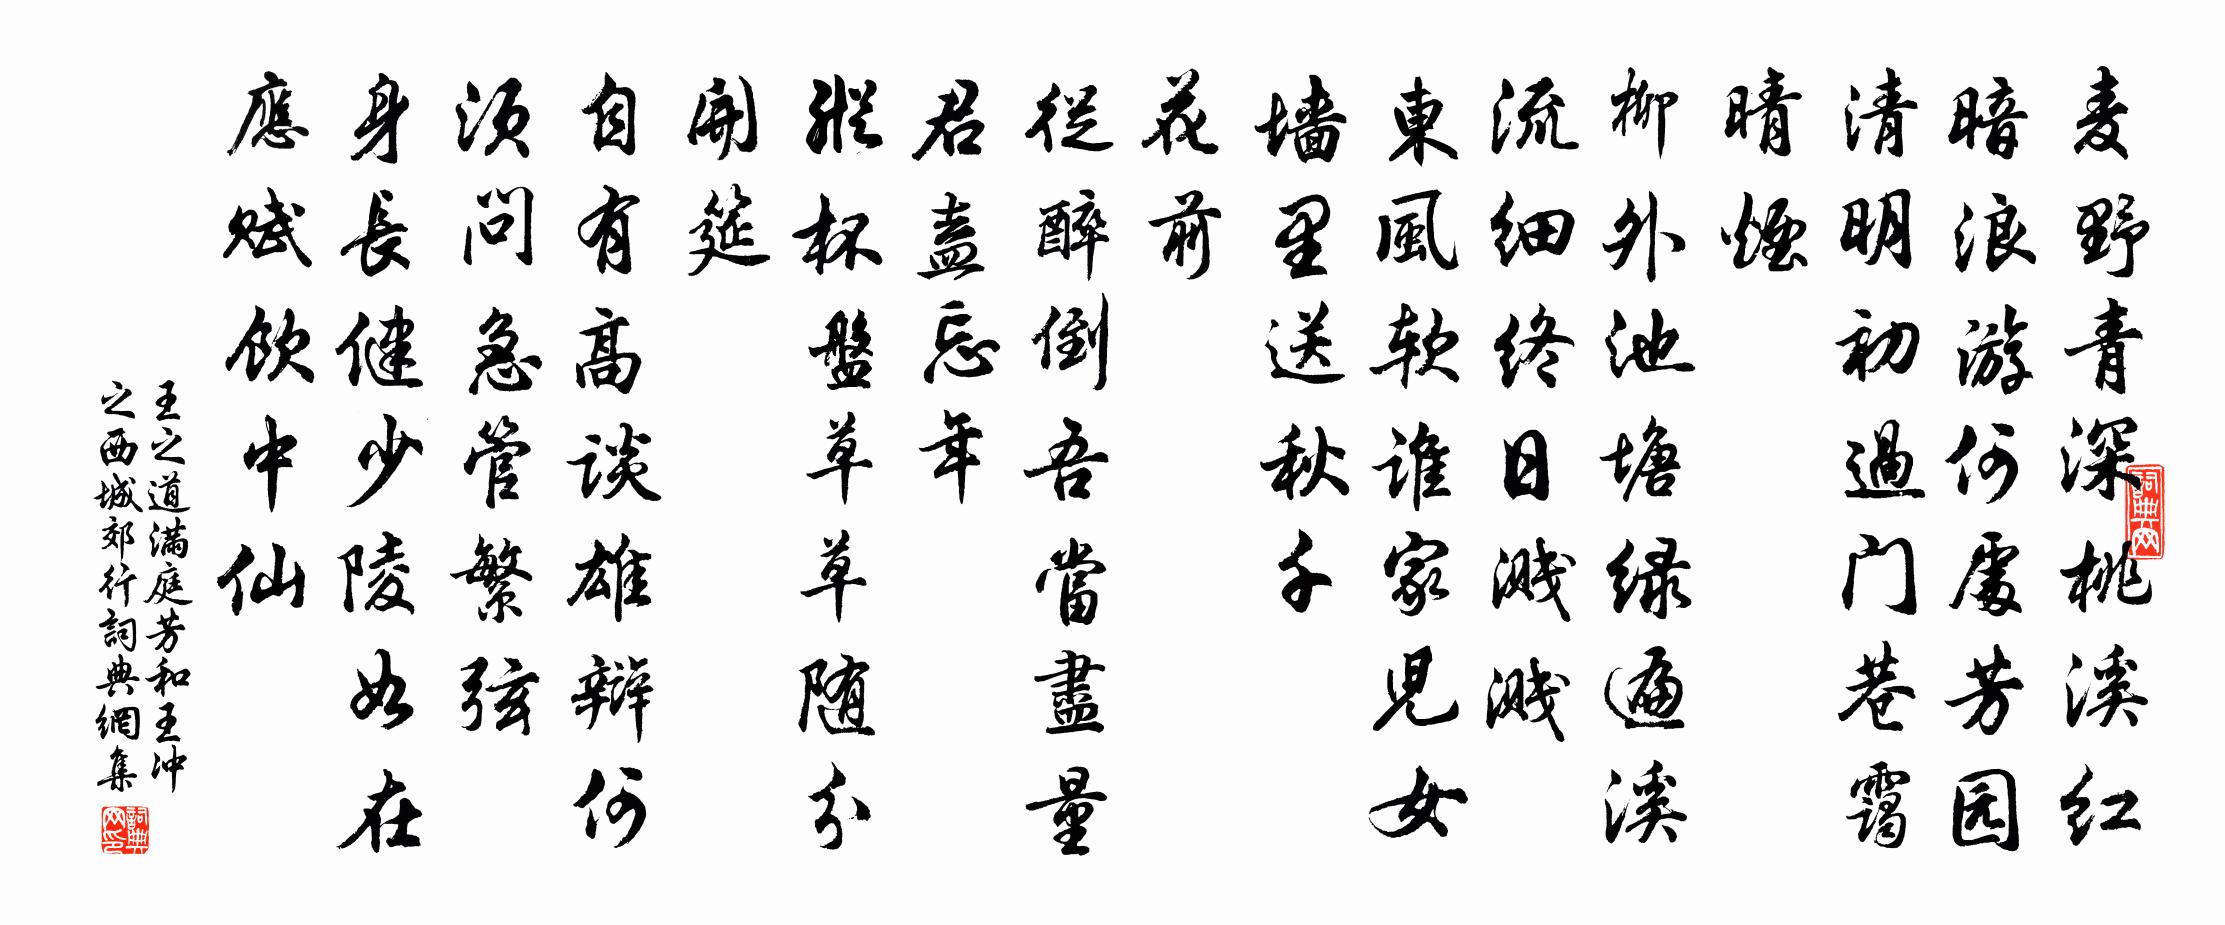 麦野青深桃溪红
暗浪游何處芳园
清明初過门巷靄
晴煙
柳外池塘绿遍溪
流细终日溅溅
東風软谁家児女
墙里送秋千
花前
從醉倒吾當盡量
君盍忘年
縱杯盤草草随分
開筵
自有高谈雄辩何
须问急管繁弦
身長健少陵如在
應赋飲中仙
王之道满庭芳和王冲
之西城郊行詞典網集
詞典网
詞典网印